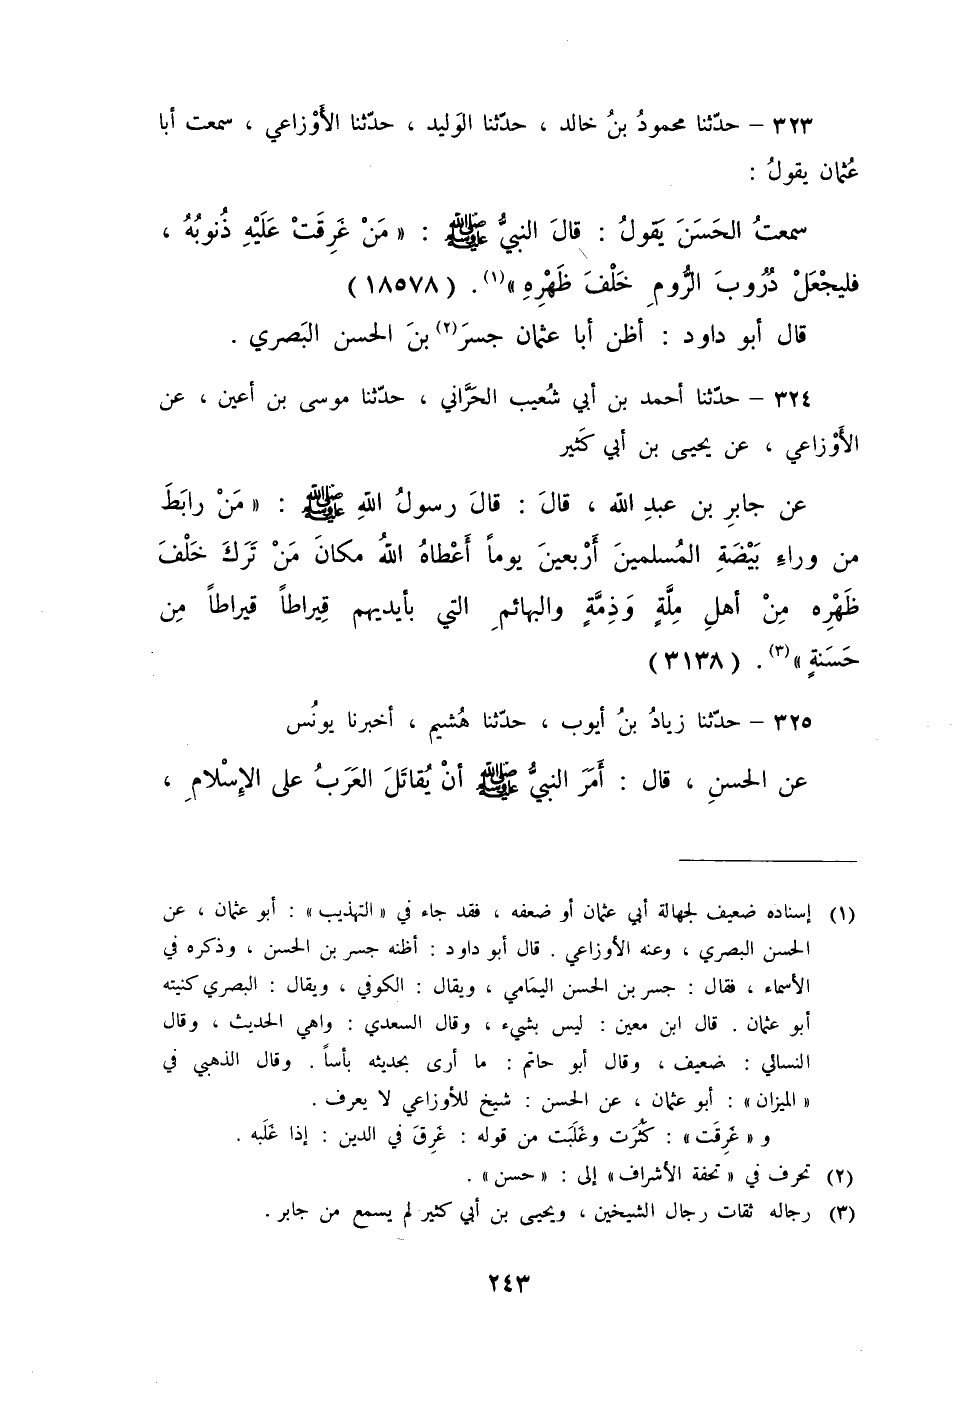 ٣٢٣ – حدّثنا محمودُ بنُ خالد ، حدّثنا الوَليد ، حدّثنا الأَوْزاعي ، سمعت أبا
عُثمان يقولُ :
سمعتُ الحَسَنَ يَقولُ : قالَ النبيُّ ﷺ : « مَنْ غَرِقَتْ عَلَيْهِ ذُنوبُهُ ،
فليجْعَلْ دُرُوبَ الرُّومِ خَلْفَ ظَهْرِهِ »(١). ( ١٨٥٧٨ )
قال أبو داود : أظن أبا عثمان جسرَ(٢) بنَ الحسن البَصري .
٣٢٤ – حدّثنا أحمد بن أبي شُعيب الحَرَّاني ، حدّثنا موسى بن أعين ، عن
الأَوْزاعي ، عن يحيى بن أبي كَثير
عن جابرِ بن عبدِ الله ، قالَ : قالَ رسولُ اللهِ ﷺ : « مَنْ رابَطَ
من وراءِ بَيْضَةِ المُسلمينَ أَرْبعينَ يوماً أَعْطاهُ اللهُ مكانَ مَنْ تَرَكَ خَلْفَ
ظَهْرِه مِنْ أهلِ مِلَّةٍ وَذِمَّةٍ والبهائمِ التي بأيديهم قِيراطاً قيراطاً مِن
حَسَنةٍ »(٣). ( ٣١٣٨ )
٣٢٥ – حدّثنا زيادُ بنُ أيوب ، حدّثنا هُشيم ، أخبرنا يونُس
عن الحسنِ ، قال : أَمَرَ النبيُّ ﷺ أنْ يُقاتَلَ العَرَبُ على الإِسْلامِ ،
(١) إسناده ضعيف لجهالة أبي عثمان أو ضعفه ، فقد جاء في « التهذيب » : أبو عثمان ، عن
الحسن البصري ، وعنه الأوزاعي . قال أبو داود : أظنه جسر بن الحسن ، وذكره في
الأسماء ، فقال : جسر بن الحسن اليمَامي ، ويقال : الكوفي ، ويقال : البصري كنيته
أبو عثمان . قال ابن معين : ليس بشيء ، وقال السعدي : واهي الحديث ، وقال
النسائي : ضعيف ، وقال أبو حاتم : ما أرى بحديثه بأساً . وقال الذهبي في
« الميزان » : أبو عثمان ، عن الحسن : شيخ للأوزاعي لا يعرف .
و « غَرِقَت » : كَثُرَت وغَلَبَت من قوله : غَرِقَ في الدين : إذا غَلَبه .
(٢) تحرف في « تحفة الأشراف » إلى : « حسن » .
(٣) رجاله ثقات رجال الشيخين ، ويحيى بن أبي كثير لم يسمع من جابر .
٢٤٣